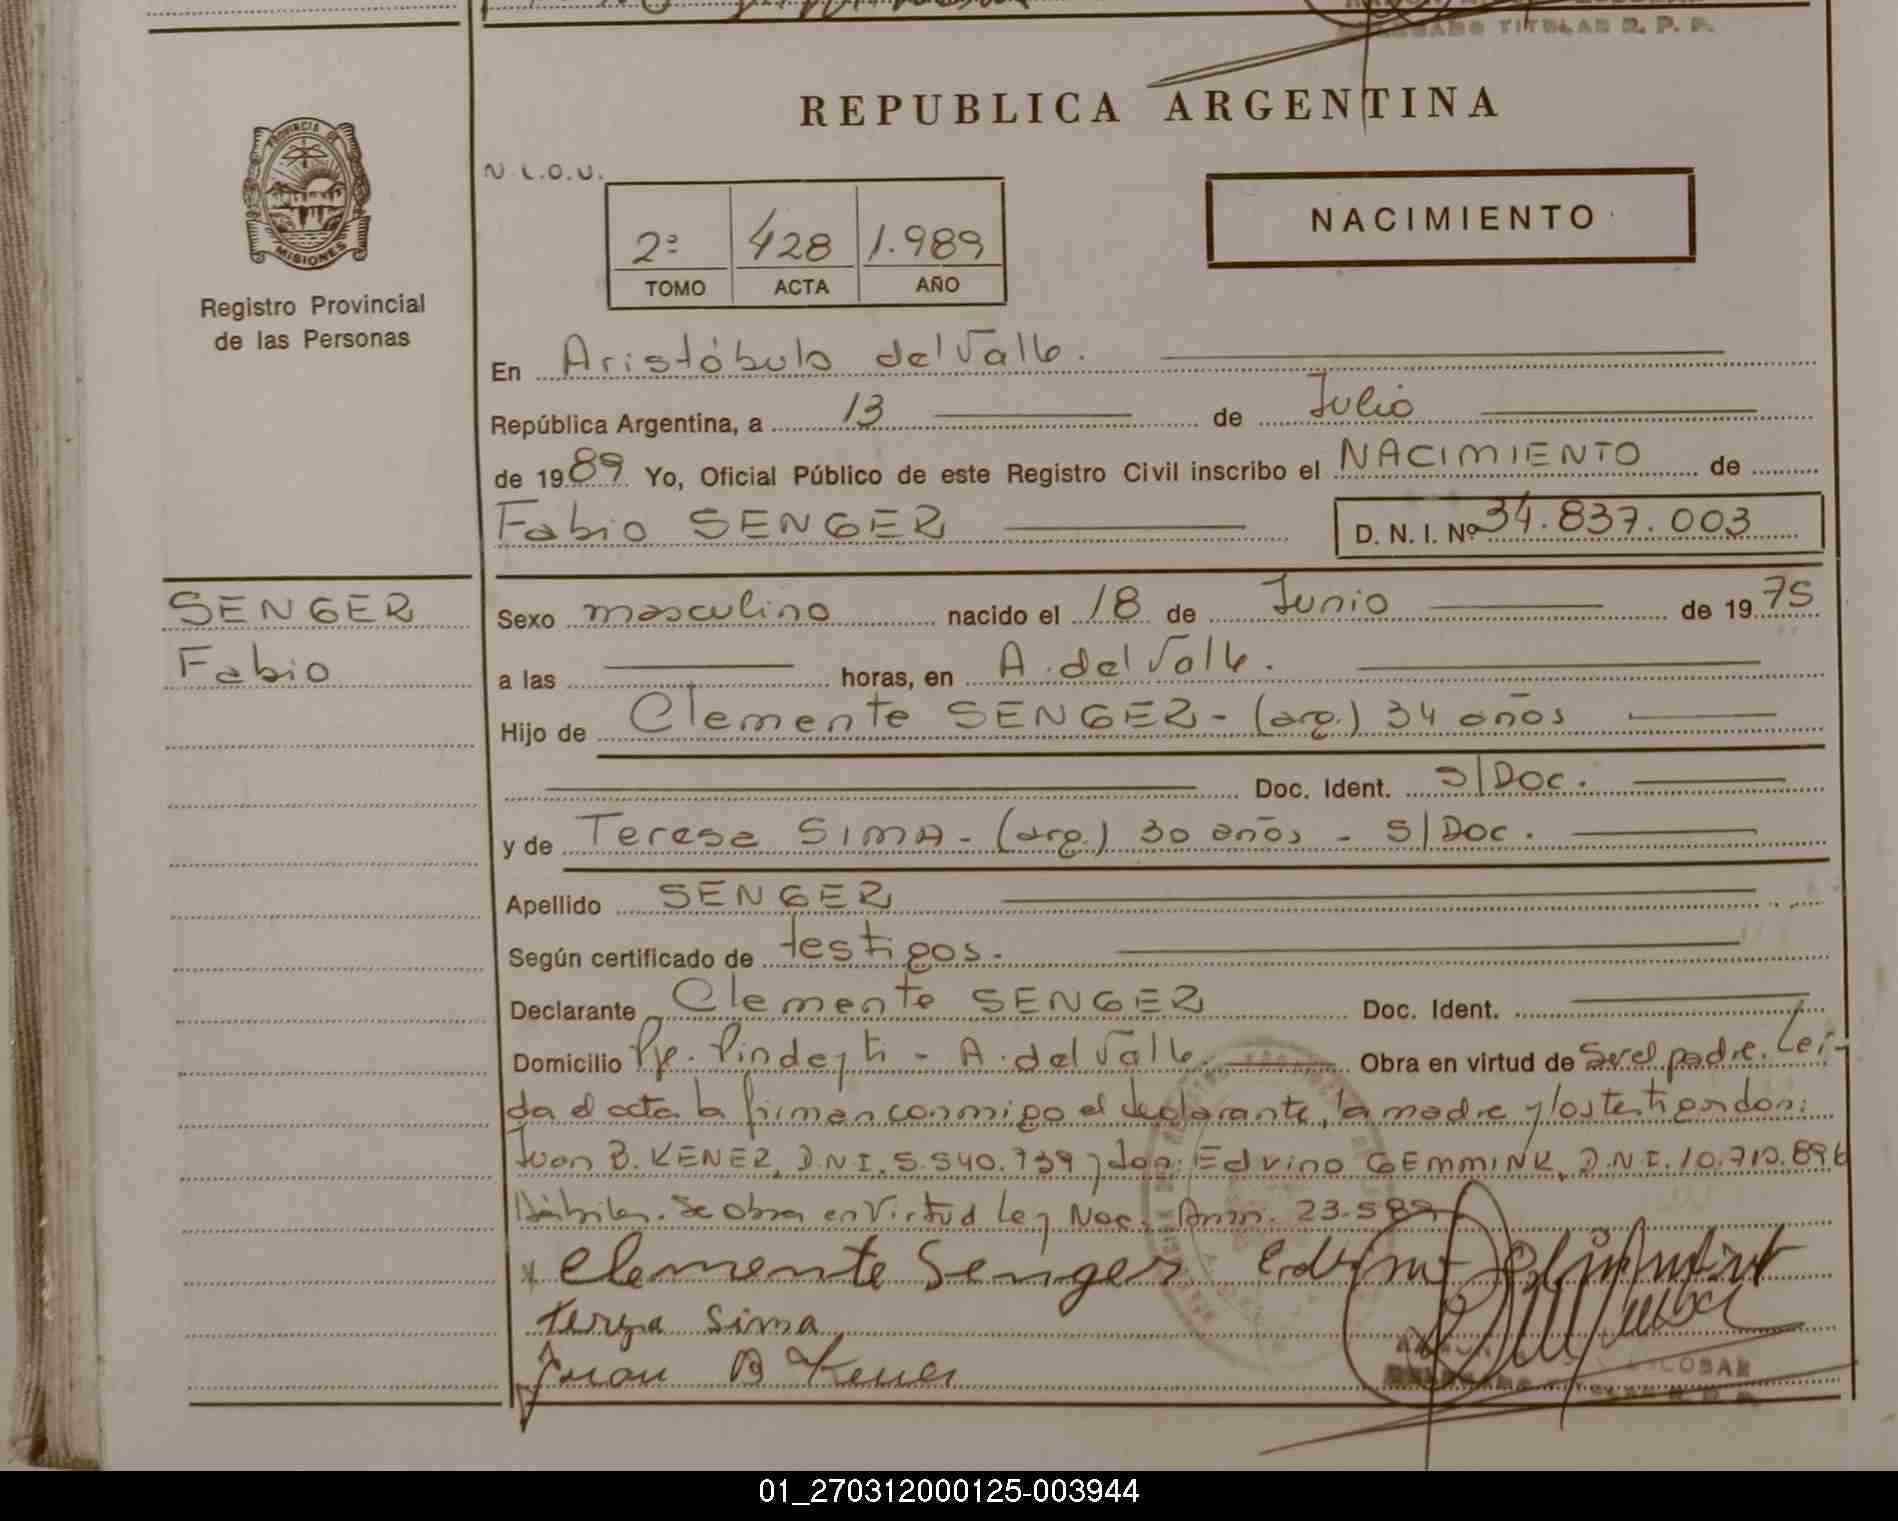 TITULAR R. P. P.
REPUBLICA ARGENTINA
PROVINCIA DE
MISIONES
Registro Provincial
de las Personas
N.L.O.U.
2º 428 1.989
TOMO ACTA AÑO
NACIMIENTO
En Aristóbulo del Valle.
República Argentina, a 13 de Julio
de 1989 Yo, Oficial Público de este Registro Civil inscribo el NACIMIENTO de
Fabio SENGER D. N. I. Nº 34.837.003
SENGER
Fabio
Sexo masculino nacido el 18 de Junio de 1975
a las horas, en A. del Valle.
Hijo de Clemente SENGER - (arg.) 34 años
Doc. Ident. S/Doc.
y de Teresa SIMA - (arg.) 30 años - S/Doc.
Apellido SENGER
Según certificado de testigos.
Declarante Clemente SENGER Doc. Ident.
Domicilio Pje. Pindeyti - A. del Valle. Obra en virtud de Ser el padre. Lei-
da el acta la firman conmigo el declarante, la madre y los testigos don:
Juan B. KENER, D.N.I. 5.540.739 y don: Edvino GEMMINK, D.N.I. 10.710.896
Hábiles. Se obra en Virtud Ley Nac. Amn. 23.589
x Clemente Senger
Teresa Sima
Juan B Kener
ESCOBAR
01_270312000125-003944